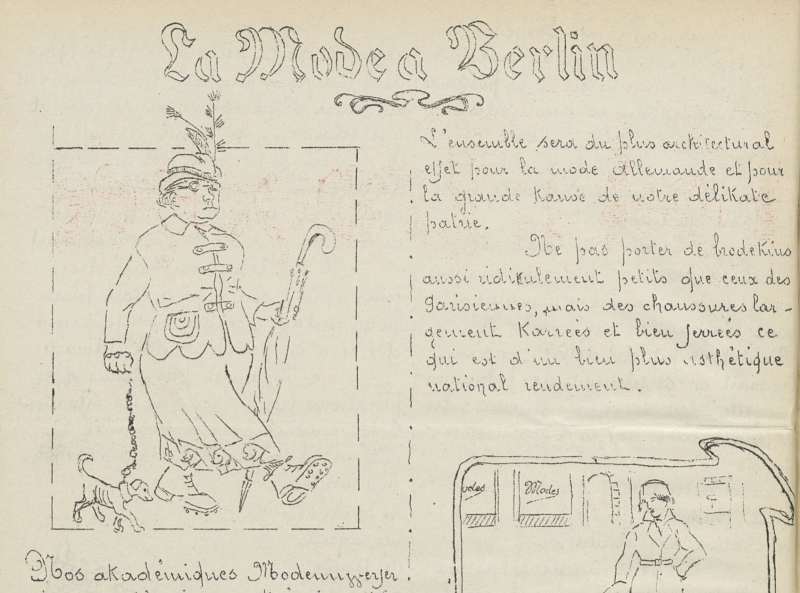 La Mode a Berlin
L'ensemble sera du plus architectural
effet pour la mode Allemande et pour
la grande kause de notre délikate
patrie.
Ne pas porter de brodekins
aussi ridikulement petits que ceux des
Parisiennes, mais des chaussures lar-
gement karrées et bien ferrées ce
qui est d'un bien plus esthétique
national rendement.
odes
Modes
Nos akadémiques